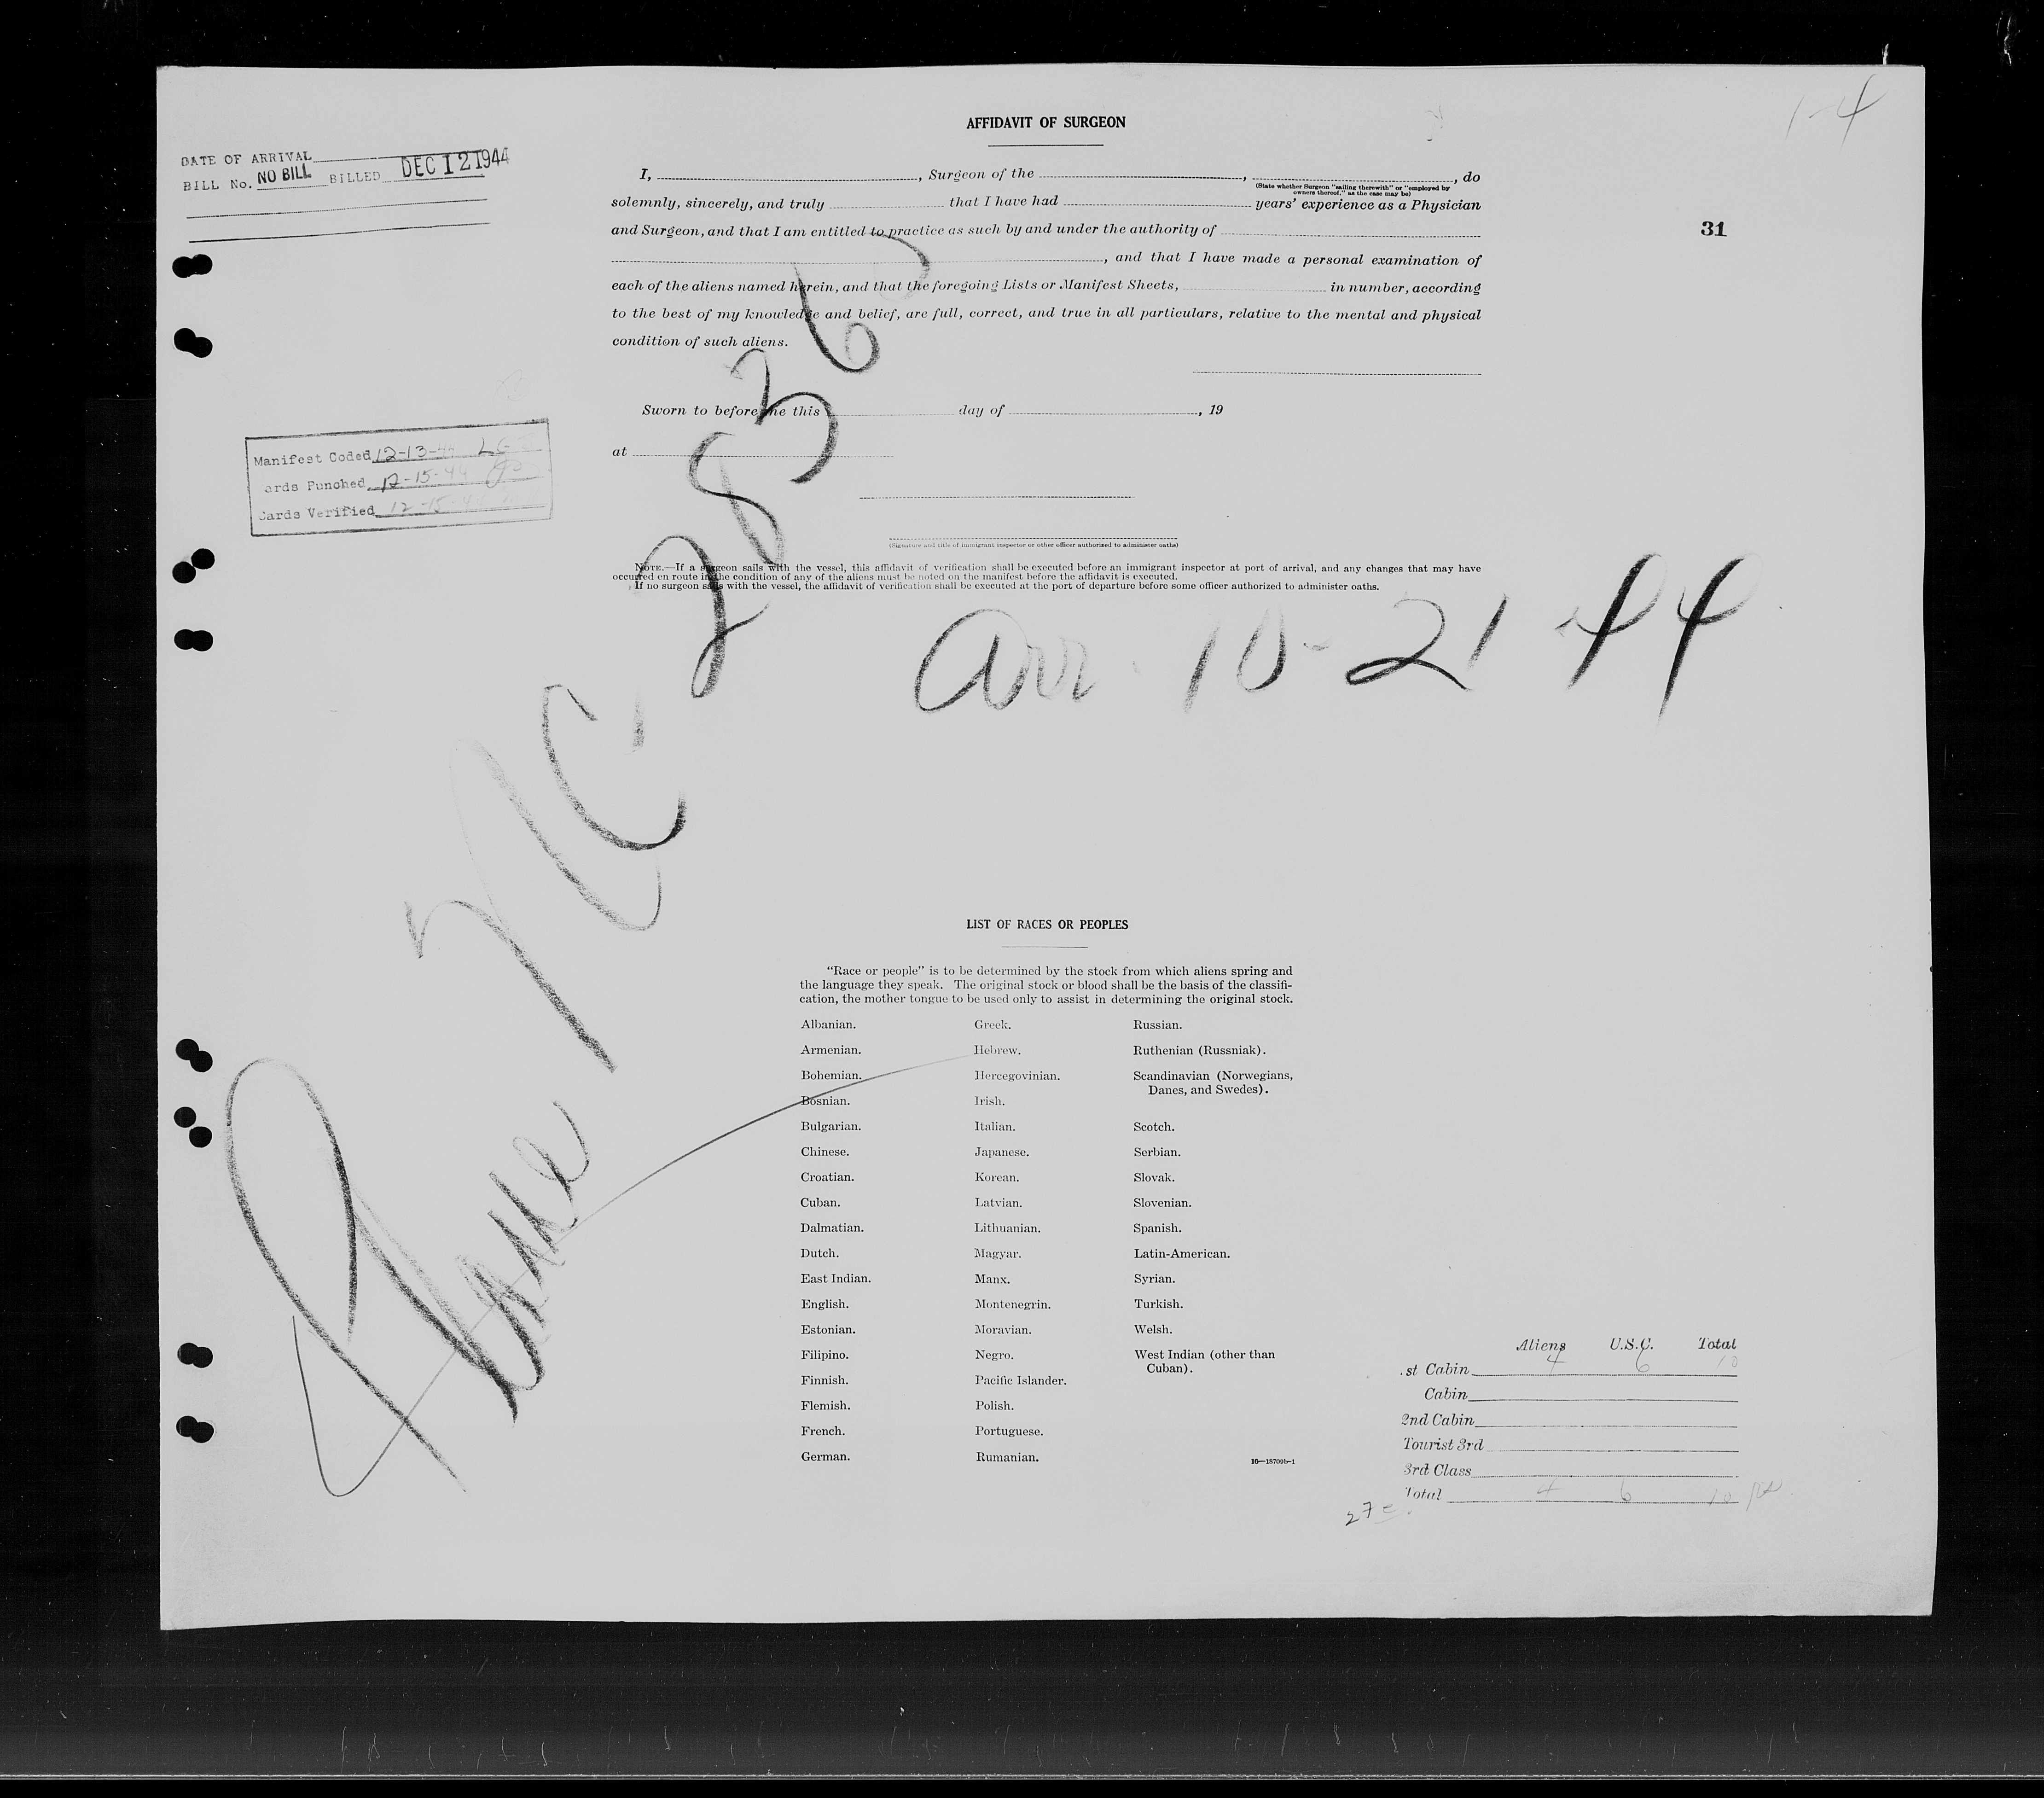 1-4
AFFIDAVIT OF SURGEON
DATE OF ARRIVAL
BILL No. NO BILL BILLED DEC 12 1944
31
I, , Surgeon of the , , do
(State whether Surgeon "sailing therewith" or "employed by
owners thereof," as the case may be)
solemnly, sincerely, and truly that I have had years' experience as a Physician
and Surgeon, and that I am entitled to practice as such by and under the authority of
, and that I have made a personal examination of
each of the aliens named herein, and that the foregoing Lists or Manifest Sheets, in number, according
to the best of my knowledge and belief, are full, correct, and true in all particulars, relative to the mental and physical
condition of such aliens.
Sworn to before me this day of , 19
at
Manifest Coded 12-13-44
ards Punched 12-15-44
Cards Verified 12-15-44
(Signature and title of immigrant inspector or other officer authorized to administer oaths)
NOTE.—If a surgeon sails with the vessel, this affidavit of verification shall be executed before an immigrant inspector at port of arrival, and any changes that may have
occurred en route in the condition of any of the aliens must be noted on the manifest before the affidavit is executed.
If no surgeon sails with the vessel, the affidavit of verification shall be executed at the port of departure before some officer authorized to administer oaths.
Plane NC 2836
arr. 10-21-44
LIST OF RACES OR PEOPLES
"Race or people" is to be determined by the stock from which aliens spring and
the language they speak. The original stock or blood shall be the basis of the classifi-
cation, the mother tongue to be used only to assist in determining the original stock.
Albanian.
Armenian.
Bohemian.
Bosnian.
Bulgarian.
Chinese.
Croatian.
Cuban.
Dalmatian.
Dutch.
East Indian.
English.
Estonian.
Filipino.
Finnish.
Flemish.
French.
German.
Greek.
Hebrew.
Hercegovinian.
Irish.
Italian.
Japanese.
Korean.
Latvian.
Lithuanian.
Magyar.
Manx.
Montenegrin.
Moravian.
Negro.
Pacific Islander.
Polish.
Portuguese.
Rumanian.
Russian.
Ruthenian (Russniak).
Scandinavian (Norwegians,
Danes, and Swedes).
Scotch.
Serbian.
Slovak.
Slovenian.
Spanish.
Latin-American.
Syrian.
Turkish.
Welsh.
West Indian (other than
Cuban).
16—18700b-1
Aliens U.S.C. Total
.st Cabin 4 6 10
Cabin
2nd Cabin
Tourist 3rd
3rd Class
Total 4 6 10
27